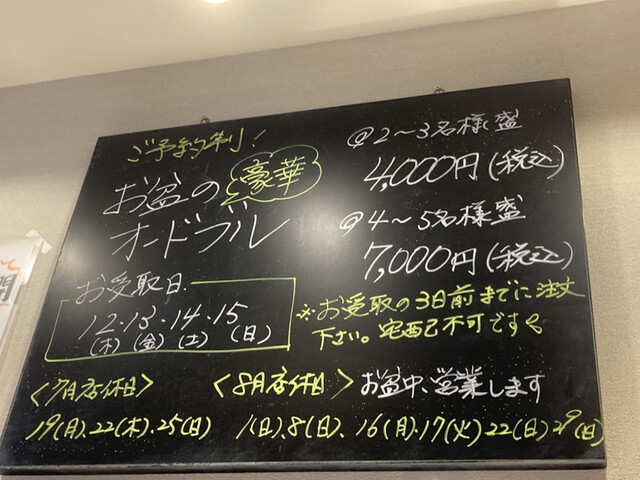 ご予約制!
お盆の豪華
オードブル
@2~3名様盛
4,000円(税込)
@4~5名様盛
7,000円(税込)
お受取日
12・13・14・15
(木)(金)(土)(日)
※お受取の3日前までに注文
下さい。宅配不可です
〈7月店休日〉
19(月).22(木).25(日)
〈8月店休日〉
1(日).8(日)、16(月).17(火)22(日)29(日)
お盆中、営業します